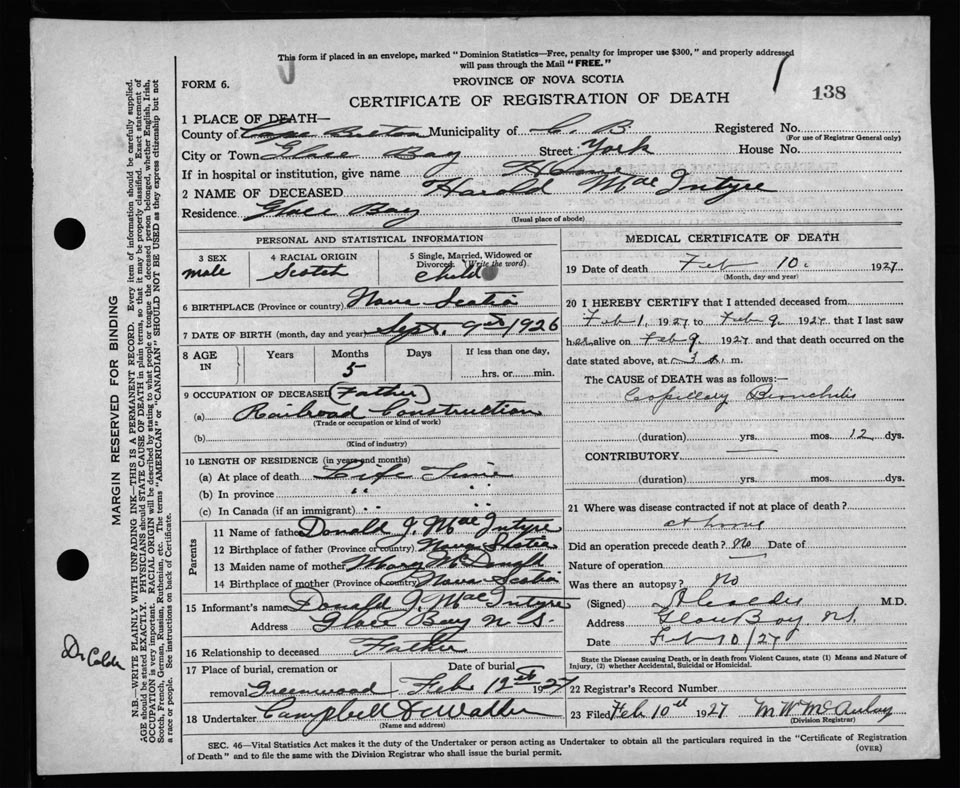 This form if placed in an envelope, marked "Dominion Statistics—Free, penalty for improper use $300," and properly addressed
will pass through the Mail "FREE."
FORM 6.
PROVINCE OF NOVA SCOTIA
CERTIFICATE OF REGISTRATION OF DEATH
138
1 PLACE OF DEATH—
County of Cape Breton Municipality of C. B. Registered No.
(For use of Registrar General only)
City or Town Glace Bay Street York House No.
If in hospital or institution, give name Home
2 NAME OF DECEASED Harold Mac Intyre
Residence Glace Bay
(Usual place of abode)
PERSONAL AND STATISTICAL INFORMATION
3 SEX 4 RACIAL ORIGIN 5 Single, Married, Widowed or
Divorced (Write the word)
male Scotch Child
6 BIRTHPLACE (Province or country) Nova Scotia
7 DATE OF BIRTH (month, day and year) Sept. 9th 1926
8 AGE IN Years Months Days If less than one day,
5 hrs. or min.
9 OCCUPATION OF DECEASED (Father)
(a) Railroad Construction
(Trade or occupation or kind of work)
(b)
(Kind of industry)
10 LENGTH OF RESIDENCE (in years and months)
(a) At place of death Life Time
(b) In province " "
(c) In Canada (if an immigrant) " "
Parents
11 Name of father Donald J. Mac Intyre
12 Birthplace of father (Province or country) Nova Scotia
13 Maiden name of mother Mary
14 Birthplace of mother (Province or country) Nova Scotia
15 Informant's name Donald J. Mac Intyre
Address Glace Bay N.S.
16 Relationship to deceased Father
17 Place of burial, cremation or Date of burial
removal Greenwood Feb 12 1927
18 Undertaker Campbell &
(Name and address)
MEDICAL CERTIFICATE OF DEATH
19 Date of death Feb 10. 1927
(Month, day and year)
20 I HEREBY CERTIFY that I attended deceased from
Feb 1, 1927 to Feb 9 1927 that I last saw
h alive on Feb 9 1927 and that death occurred on the
date stated above, at 3 m.
The CAUSE of DEATH was as follows:—
Capillary Bronchitis
(duration) yrs. mos. 12 dys.
CONTRIBUTORY
(duration) yrs. mos. dys.
21 Where was disease contracted if not at place of death?
At home
Did an operation precede death? No Date of
Nature of operation
Was there an autopsy? No
(Signed) M.D.
Address Glace Bay N.S.
Date Feb 10/27
State the Disease causing Death, or in death from Violent Causes, state (1) Means and Nature of
Injury, (2) whether Accidental, Suicidal or Homicidal.
22 Registrar's Record Number
23 Filed Feb 10th 1927 M W McAulay
(Division Registrar)
SEC. 46—Vital Statistics Act makes it the duty of the Undertaker or person acting as Undertaker to obtain all the particulars required in the "Certificate of Registration
of Death" and to file the same with the Division Registrar who shall issue the burial permit.
(OVER)
MARGIN RESERVED FOR BINDING
N.B.—WRITE PLAINLY WITH UNFADING INK—THIS IS A PERMANENT RECORD. Every item of information should be carefully supplied.
AGE should be stated EXACTLY. PHYSICIANS should STATE CAUSE OF DEATH in plain terms, so that it may be properly classified. Exact statement of
OCCUPATION is very important. RACIAL ORIGIN will be described by stating to what people or tongue the deceased person belonged, whether English, Irish,
Scotch, French, German, Russian, Ruthenian, etc. The terms "AMERICAN" or "CANADIAN" SHOULD NOT BE USED as they express citizenship but not
a race or people. See instructions on back of Certificate.
Dr Calder